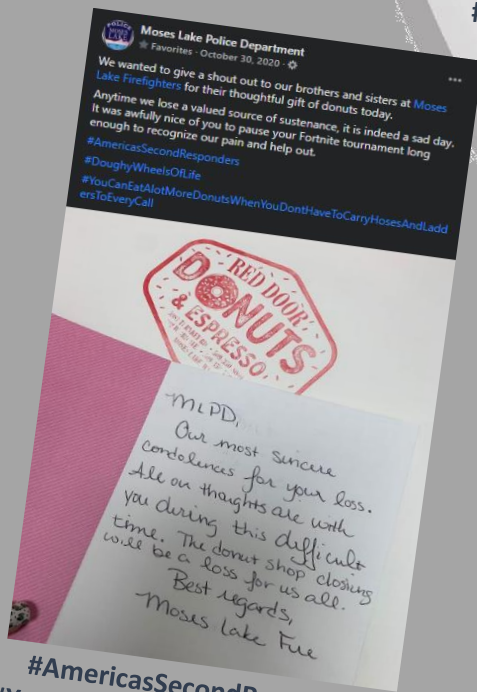 POLICE
MOSES LAKE
Moses Lake Police Department
Favorites · October 30, 2020 ·
We wanted to give a shout out to our brothers and sisters at Moses
Lake Firefighters for their thoughtful gift of donuts today.
Anytime we lose a valued source of sustenance, it is indeed a sad day.
It was awfully nice of you to pause your Fortnite tournament long
enough to recognize our pain and help out.
#AmericasSecondResponders
#DoughyWheelsOfLife
#YouCanEatAlotMoreDonutsWhenYouDontHaveToCarryHosesAndLadd
ersToEveryCall
RED DOOR
DONUTS
& ESPRESSO
MLPD,
Our most sincere
condolences for your loss.
All our thoughts are with
you during this difficult
time. The donut shop closing
will be a loss for us all.
Best regards,
Moses Lake Fire